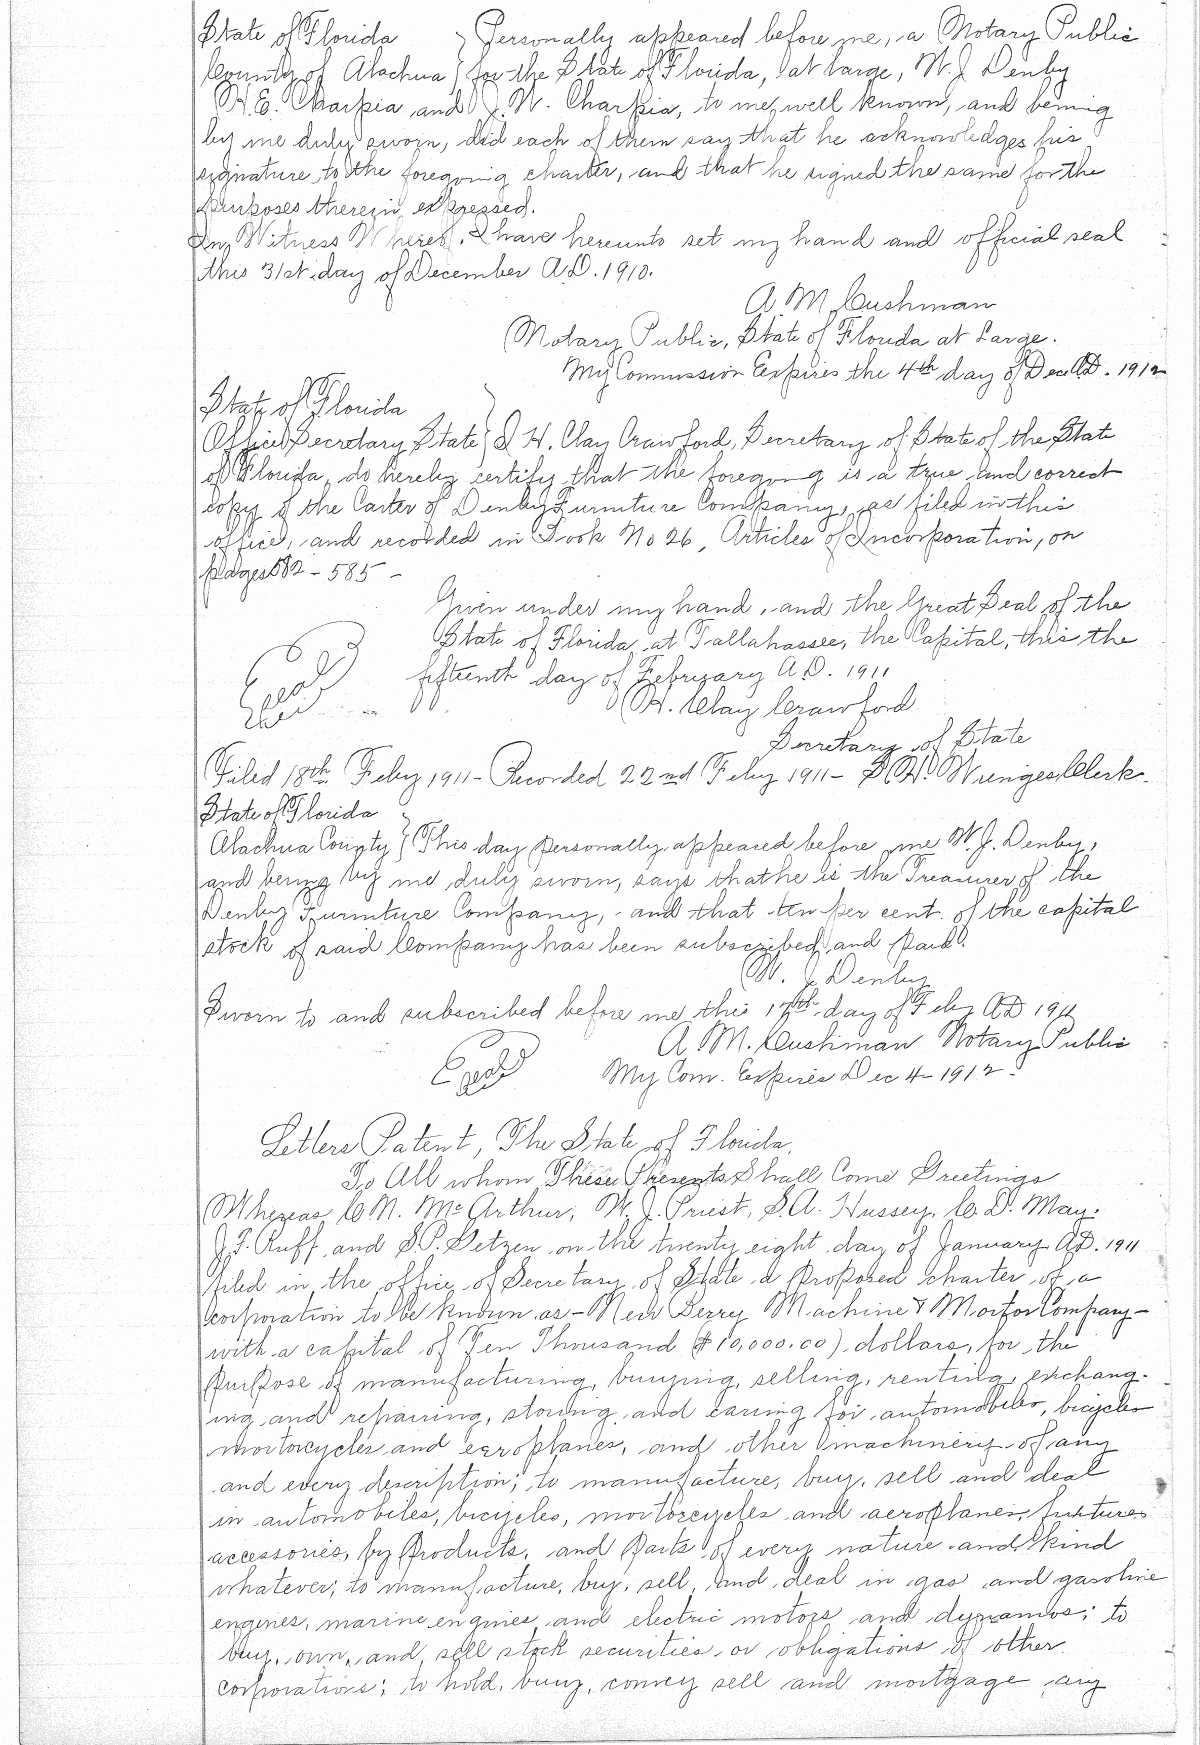 State of Florida } Personally appeared before me, a Notary Public
County of Alachua } for the State of Florida, at large, W. J. Denby
H. E. Charpia and J. W. Charpia, to me well known, and being
by me duly sworn, did each of them say that he acknowledges his
signature to the foregoing charter, and that he signed the same for the
purposes therein expressed.
In Witness Whereof, I have hereunto set my hand and official seal
this 31st day of December A.D. 1910.
A. M. Cushman
Notary Public, State of Florida at Large.
My Commission Expires the 4th day of Dec A.D. 1912
State of Florida }
Office Secretary State } I H. Clay Crawford, Secretary of State of the State
of Florida, do hereby certify that the foregoing is a true and correct
copy of the Carter of Denby Furniture Company, as filed in this
office, and recorded in Book No 26, Articles of Incorporation, on
pages 582 - 585 -
Given under my hand, and the Great Seal of the
State of Florida at Tallahassee, the Capital, this the
fifteenth day of February A.D. 1911
Seal
H. Clay Crawford
Secretary of State
Filed 18th Feby 1911 - Recorded 22nd Feby 1911 - S. H. Wienges Clerk.
State of Florida }
Alachua County } This day personally appeared before me W. J. Denby,
and being by me duly sworn, says that he is the Treasurer of the
Denby Furniture Company, and that ten per cent. of the capital
stock of said Company has been subscribed and paid.
W. J. Denby
Sworn to and subscribed before me this 17th day of Feby AD 1911
A. M. Cushman Notary Public
Seal My Com. Expires Dec 4 - 1912.
Letters Patent, The State of Florida.
To All whom These Presents Shall Come Greetings
Whereas C. M. McArthur, W. J. Priest, S. A. Hussey, C. D. May.
J. F. Ruff and S. P. Setzen on the twenty eight day of January A.D. 1911
filed in the office of Secretary of State a proposed charter of a
corporation to be known as - New Berry Machine & Mortor Company -
with a capital of Ten Thousand ($10,000.00) dollars, for the
purpose of manufacturing, buying, selling, renting, exchang-
ing and repairing, storing and caring for automobiles, bicycles
mortorcycles and eeroplanes, and other machinery of any
and every description; to manufacture, buy, sell and deal
in automobiles, bicycles, mortorcycles and aeroplanes, fixtures
accessories, by products, and parts of every nature and kind
whatever; to manufacture, buy, sell and deal in gas and gasoline
engines, marine engines and electric motors and dynamos; to
buy, own, and sell stock securities or obligations of other
corporations; to hold, buy, convey sell and mortgage any